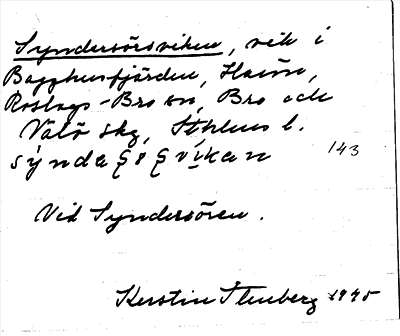 Syndersörsviken, vik i
Bagghusfjärden, Hamn,
Roslags-Bro sn, Bro och
Väto skg, Sthlms l.
143
Vid Syndersören.
Kerstin Stenberg 1945